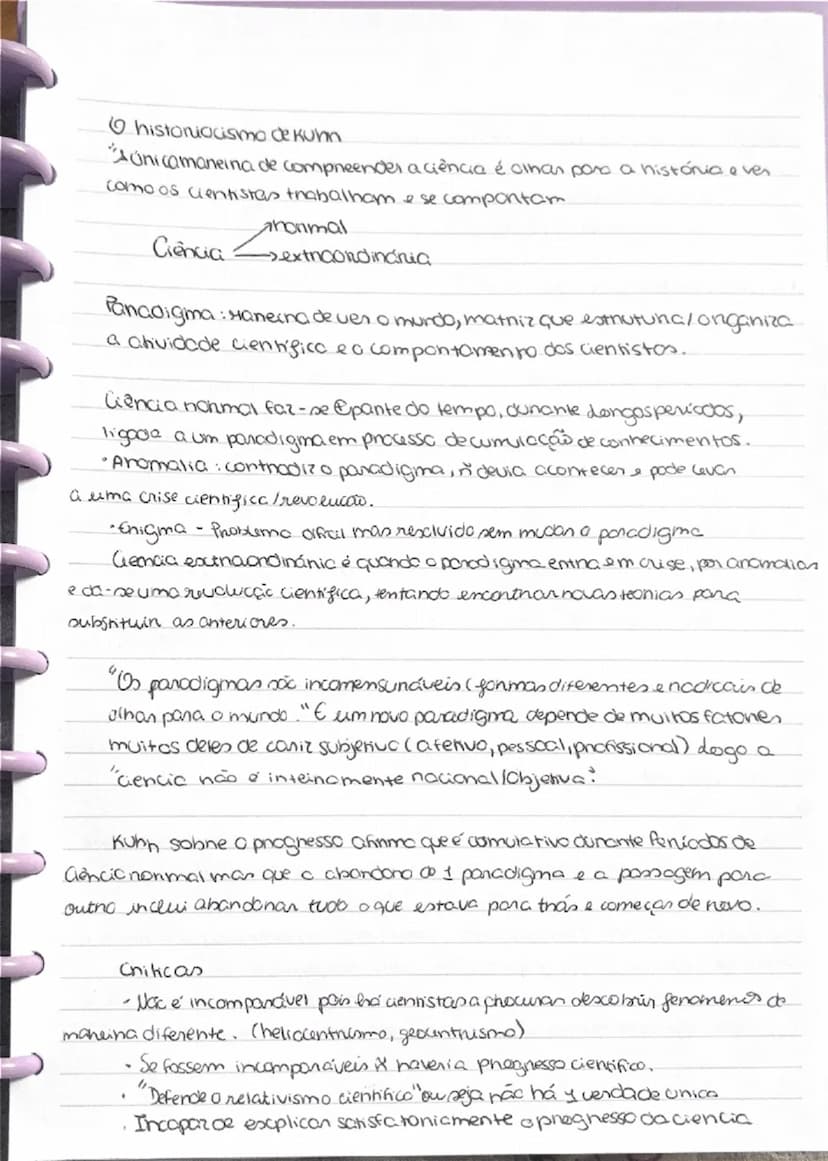 O historiocismo de Kuhn
"A única maneira de compreender a ciência é olhar para a história e ver
como os cientistas trabalham e se comportam
normal
Ciência
→ extraordinária
Paradigma: Maneira de ver o mundo, matriz que estrutura/organiza
a atividade científica e o comportamento dos cientistas.
Ciência normal faz-se parte do tempo, durante longos períodos,
ligada a um paradigma em processo de cumulação de conhecimentos.
• Anomalia: contradiz o paradigma, ñ devia acontecer e pode levar
a uma crise científica/revolução.
• Enigma - Problema difícil mas resolvido sem mudar o paradigma
Ciencia extraordinária é quando o paradigma entra em crise, por anomalias
e da-se uma revolução científica, tentando encontrar novas teorias para
substituir as anteriores.
"Os paradigmas são incomensuráveis (formas diferentes e radicais de
olhar para o mundo." E um novo paradigma depende de muitos fatores
muitos deles de cariz subjetivo (afetivo, pessoal, profissional) logo a
"ciencia não é inteiramente racional/Objetiva".
Kuhn sobre o progresso afirma que é comulativo durante Períodos de
Ciência normal mas que o abandono de 1 paradigma e a passagem para
outro inclui abandonar tudo o que estava para trás e começar de novo.
Criticas
- Não é incomparável pois há cientistas a procurar descobrir fenomenos de
maneira diferente. (heliocentrismo, geocentrismo)
• Se fossem incomparáveis ñ haveria progresso científico.
• "Defende o relativismo cientifico" ou seja não há 1 verdade unica
. Incapaz de explicar satisfatoriamente o progresso da ciencia